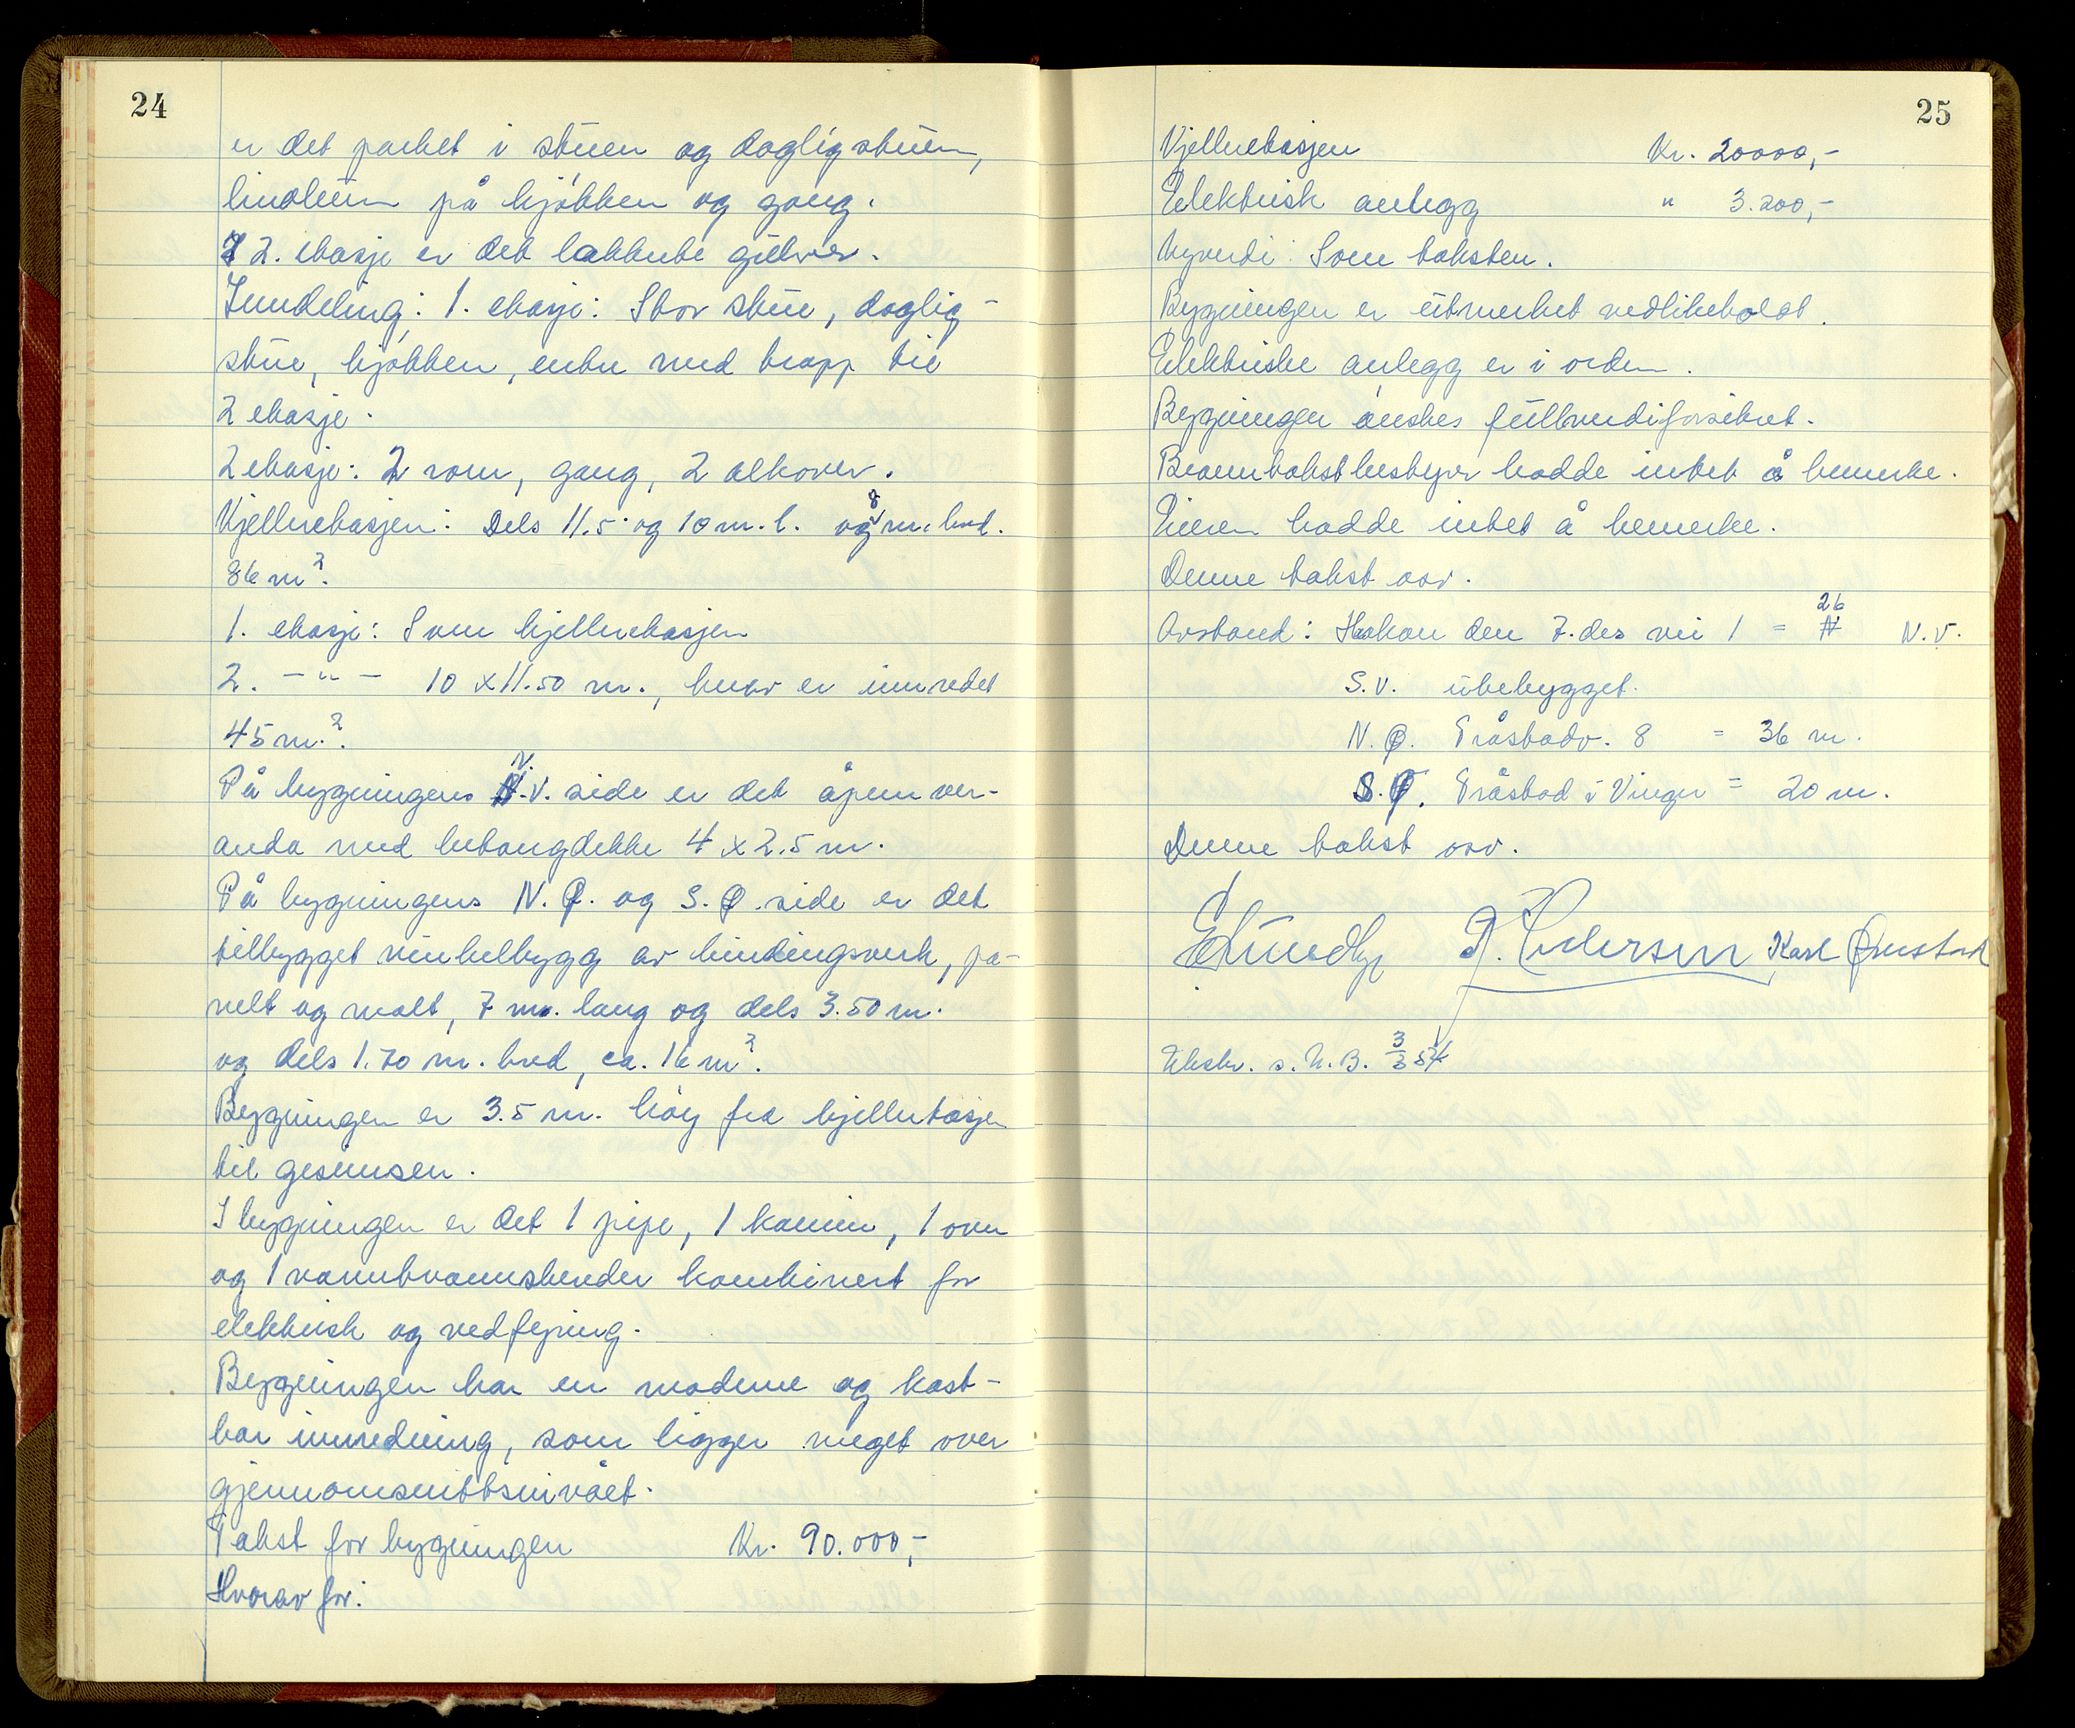 24
er det parket i stuen og dagligstuen,
linoleum på kjøkken og gang.
I 2. etasje er det lakkerte gulver.
Inndeling: 1. etasje: Stor stue, daglig-
stue, kjøkken, entre med trapp til
2 etasje.
2 etasje: 2 rom, gang, 2 alkover.
Kjelleretasjen: Dels 11.5 og 10 m. l. og 8 m. bred.
86 m².
1. etasje: Som kjelleretasjen
2. -"- 10 x 11.50 m., hvav er innredet
45 m².
På bygningens N.V. side er det åpen ver-
anda med betongdekke 4 x 2.5 m.
På bygningens N.Ø. og S.Ø. side er det
tilbygget vinkelbygg av bindingsverk, pa-
nelt og malt, 7 m. lang og dels 3.50 m.
og dels 1.70 m. bred, ca. 16 m².
Bygningen er 3.5 m. høy fra kjelleretasjen
til gesimsen.
I bygningen er det 1 pipe, 1 kamin, 1 ovn
og 1 varmtvannsbereder kombinert for
elektrisk og vedfyring.
Bygningen har en moderne og kost-
bar innredning, som ligger meget over
gjennomsnittsnivået.
Takst for bygningen Kr. 90.000,-
Hvorav for:
25
Kjelleretasjen Kr. 20000,-
Elektrisk anlegg " 3.200,-
Nyverdi: Som taksten.
Bygningen er utmerket vedlikeholdt.
Elektriske anlegg er i orden.
Bygningen ønskes fullverdiforsikret.
Branntakstbestyrer hadde intet å bemerke.
Eieren hadde intet å bemerke.
Denne takst avv.
Avstand: Håkon den 7. des vei 1 = 26 N.V.
S.V. ubebygget.
N.Ø. Fråstadv. 8 = 36 m.
S.Ø. Fråstad i Vinger = 20 m.
Denne takst avv.
R. Pedersen Karl Ørnstad
Ekskr. s. N. B. 3/3 54